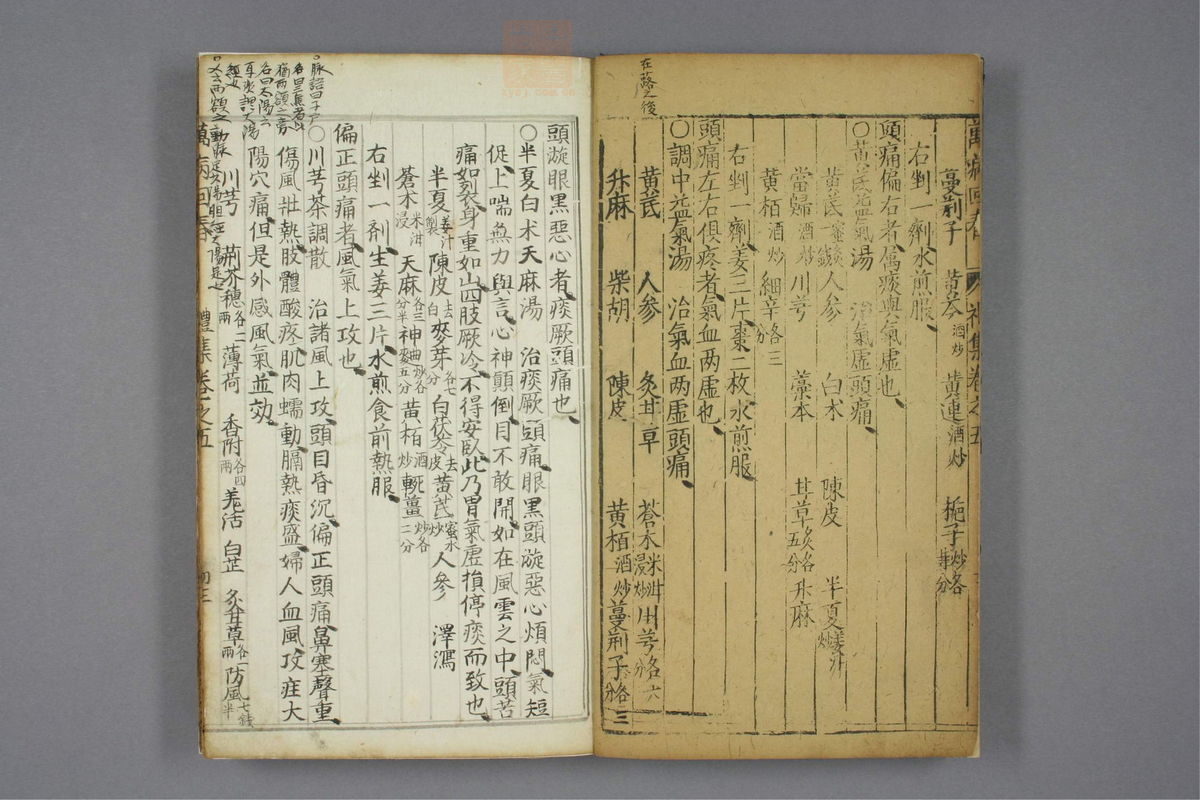 在蔓之後
萬病回春 禮集卷之五
蔓荊子 黄芩酒炒 黄連酒炒 梔子炒各等分
右剉一劑水煎服
頭痛偏右者屬痰與氣虛也
○黃芪益氣湯 治氣虛頭痛
黃芪一錢蜜炙 人參 白术 陳皮 半夏姜汁炒
當歸酒炒 川芎 藁本 甘草炙各五分 升麻
黄栢酒炒 細辛各三分
右剉一劑姜三片棗二枚水煎服
頭痛左右俱疼者氣血两虛也
○調中益氣湯 治氣血两虛頭痛
黄芪 人參 炙甘草 蒼术米泔浸炒 川芎各六分
升麻 柴胡 陳皮 黄栢酒炒 蔓荊子各三分
頭漩眼黑惡心者痰厥頭痛也
○半夏白术天麻湯 治痰厥頭痛眼黑頭漩惡心煩悶氣短
促上喘無力與言心神顛倒目不敢開如在風雲之中頭苦
痛如裂身重如山四肢厥冷不得安臥此乃胃氣虛損停痰而致也
半夏姜汁製 陳皮去白 麥芽各七分 白茯苓去皮 黃芪蜜水炒 人參 澤瀉
蒼术米泔浸 天麻各三分半 神曲炒各五分 黄栢酒炒 乾薑炒各二分
右剉一劑生姜三片水煎食前熱服
偏正頭痛者風氣上攻也
○川芎茶調散 治諸風上攻頭目昏沉偏正頭痛鼻塞聲重
傷風壯熱肢體酸疼肌肉蠕動膈熱痰盛婦人血風攻疰大
陽穴痛但是外感風氣並効
川芎 荊芥穗各二兩 薄荷 香附各四兩 羗活 白芷 炙甘草各一兩 防風七錢半
萬病回春 禮集卷之五 四三